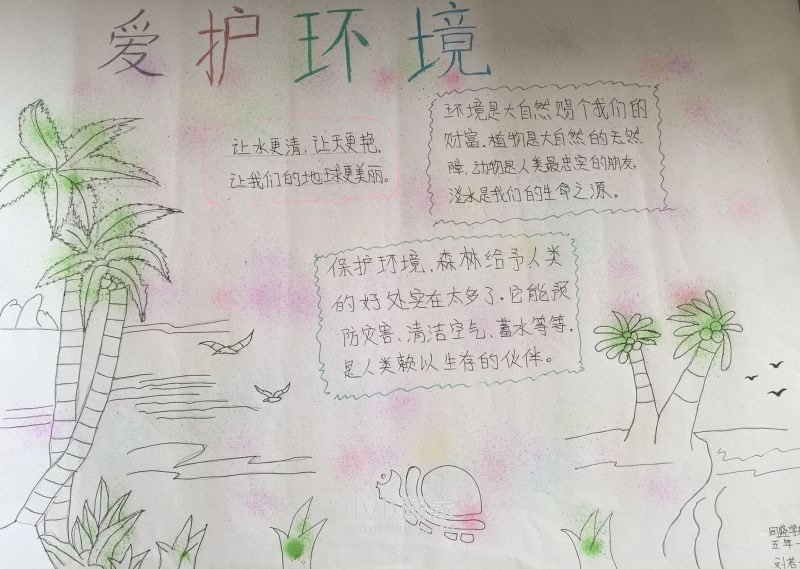 爱护环境
让水更清，让天更艳，
让我们的地球更美丽。
环境是大自然赐个我们的
财富。植物是大自然的天然
障，动物是人类最忠实的朋友，
淡水是我们的生命之源。
保护环境，森林给予人类
的好处实在太多了，它能预
防灾害、清洁空气、蓄水等等，
是人类赖以生存的伙伴。
五年一